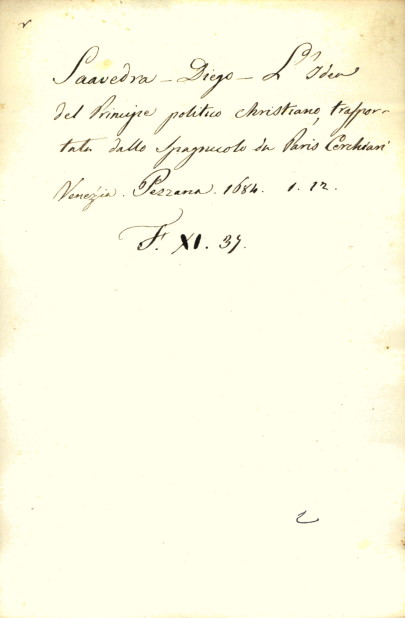 Saavedra - Diego - L'Idea
del Principe politico christiano, traspor-
tata dallo Spagnuolo da Paris Cerchiari
Venezia. Pezzana. 1684. 1. 12.
F. XI. 37.
2